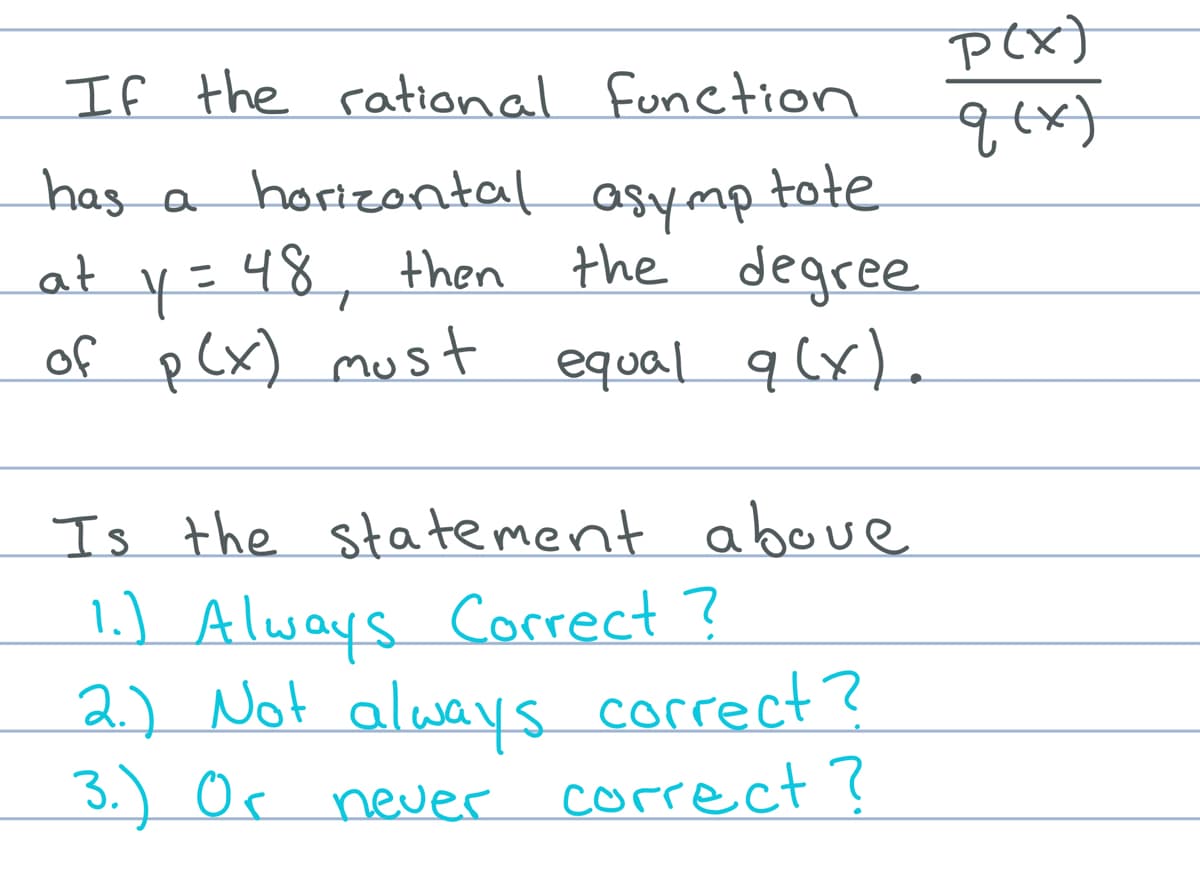 If the rational function p(x)/q(x)
has a horizontal asymptote
at y = 48, then the degree
of p(x) must equal q(x).
Is the statement above
1.) Always Correct?
2.) Not always correct?
3.) Or never correct?